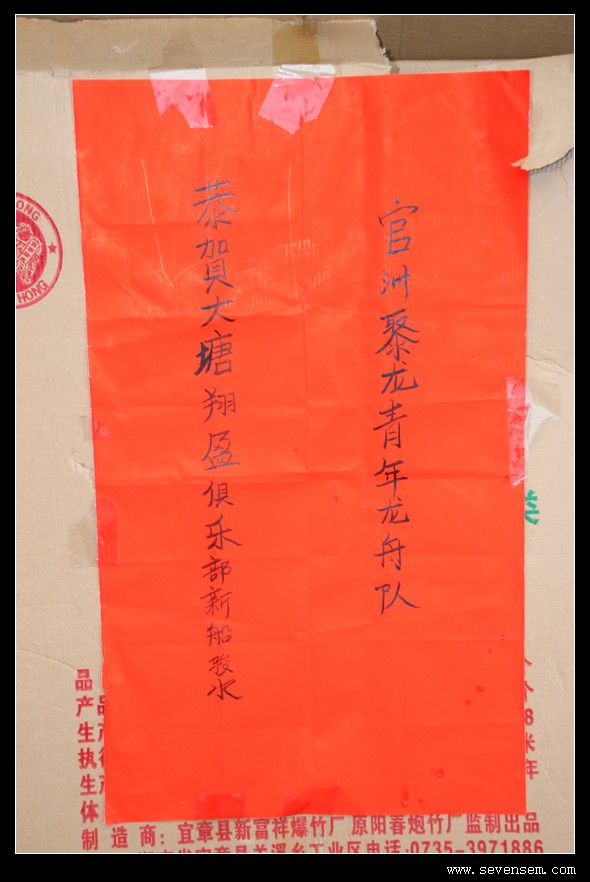 官洲聚龙青年龙舟队
恭賀大塘翔盈俱乐部新船骏水
ONG
HONG
品产生执生体制
造商：宜章县新富祥爆竹厂 原阳春炮竹厂监制出品
工业区电话:0735-3971886
个8米年
www.sevensem.com